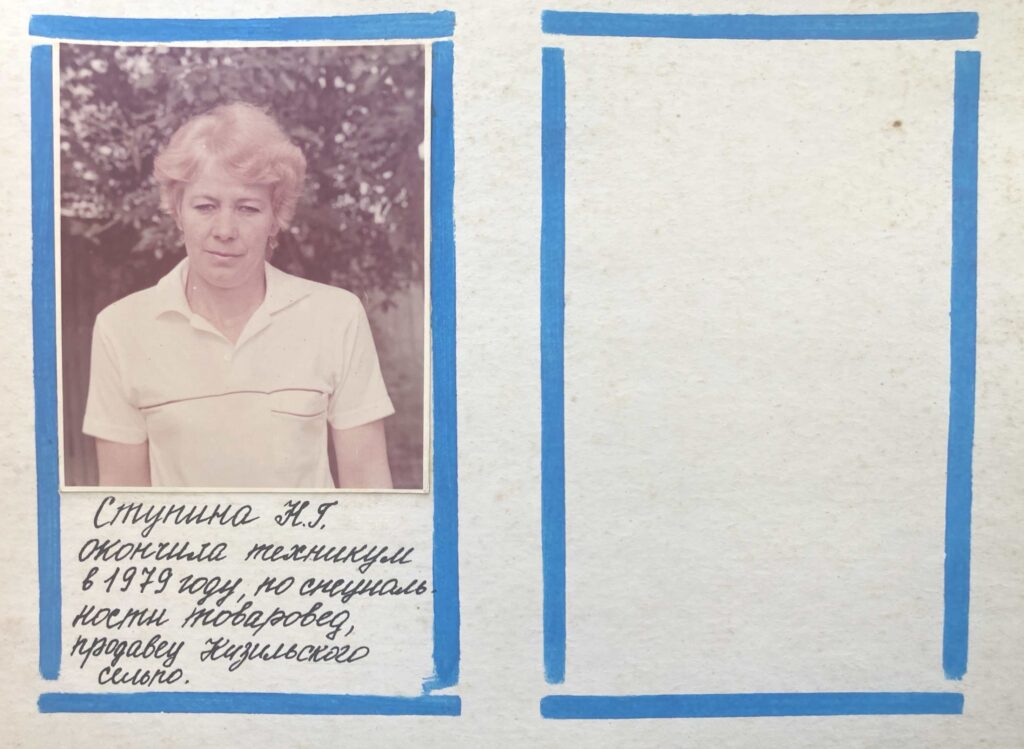 Ступина Н.Г.
окончила техникум
в 1979 году, по специаль-
ности товаровед,
продавец Кизильского
сельпо.